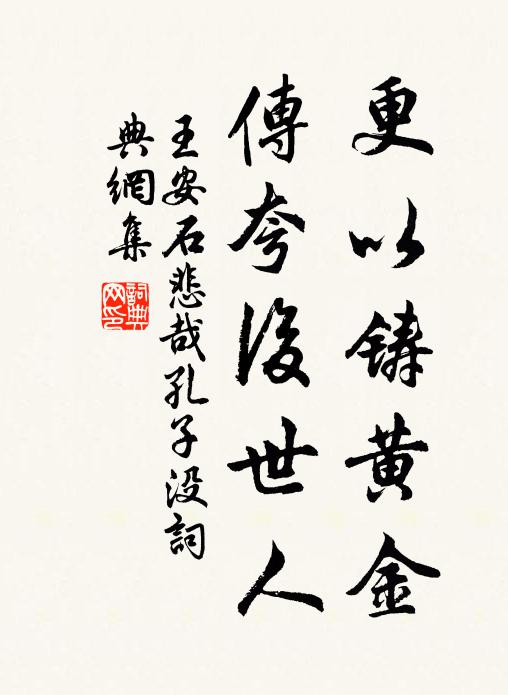 更以铸黄金
傳夸後世人
王安石悲哉孔子没詞
典網集
詞典
网印